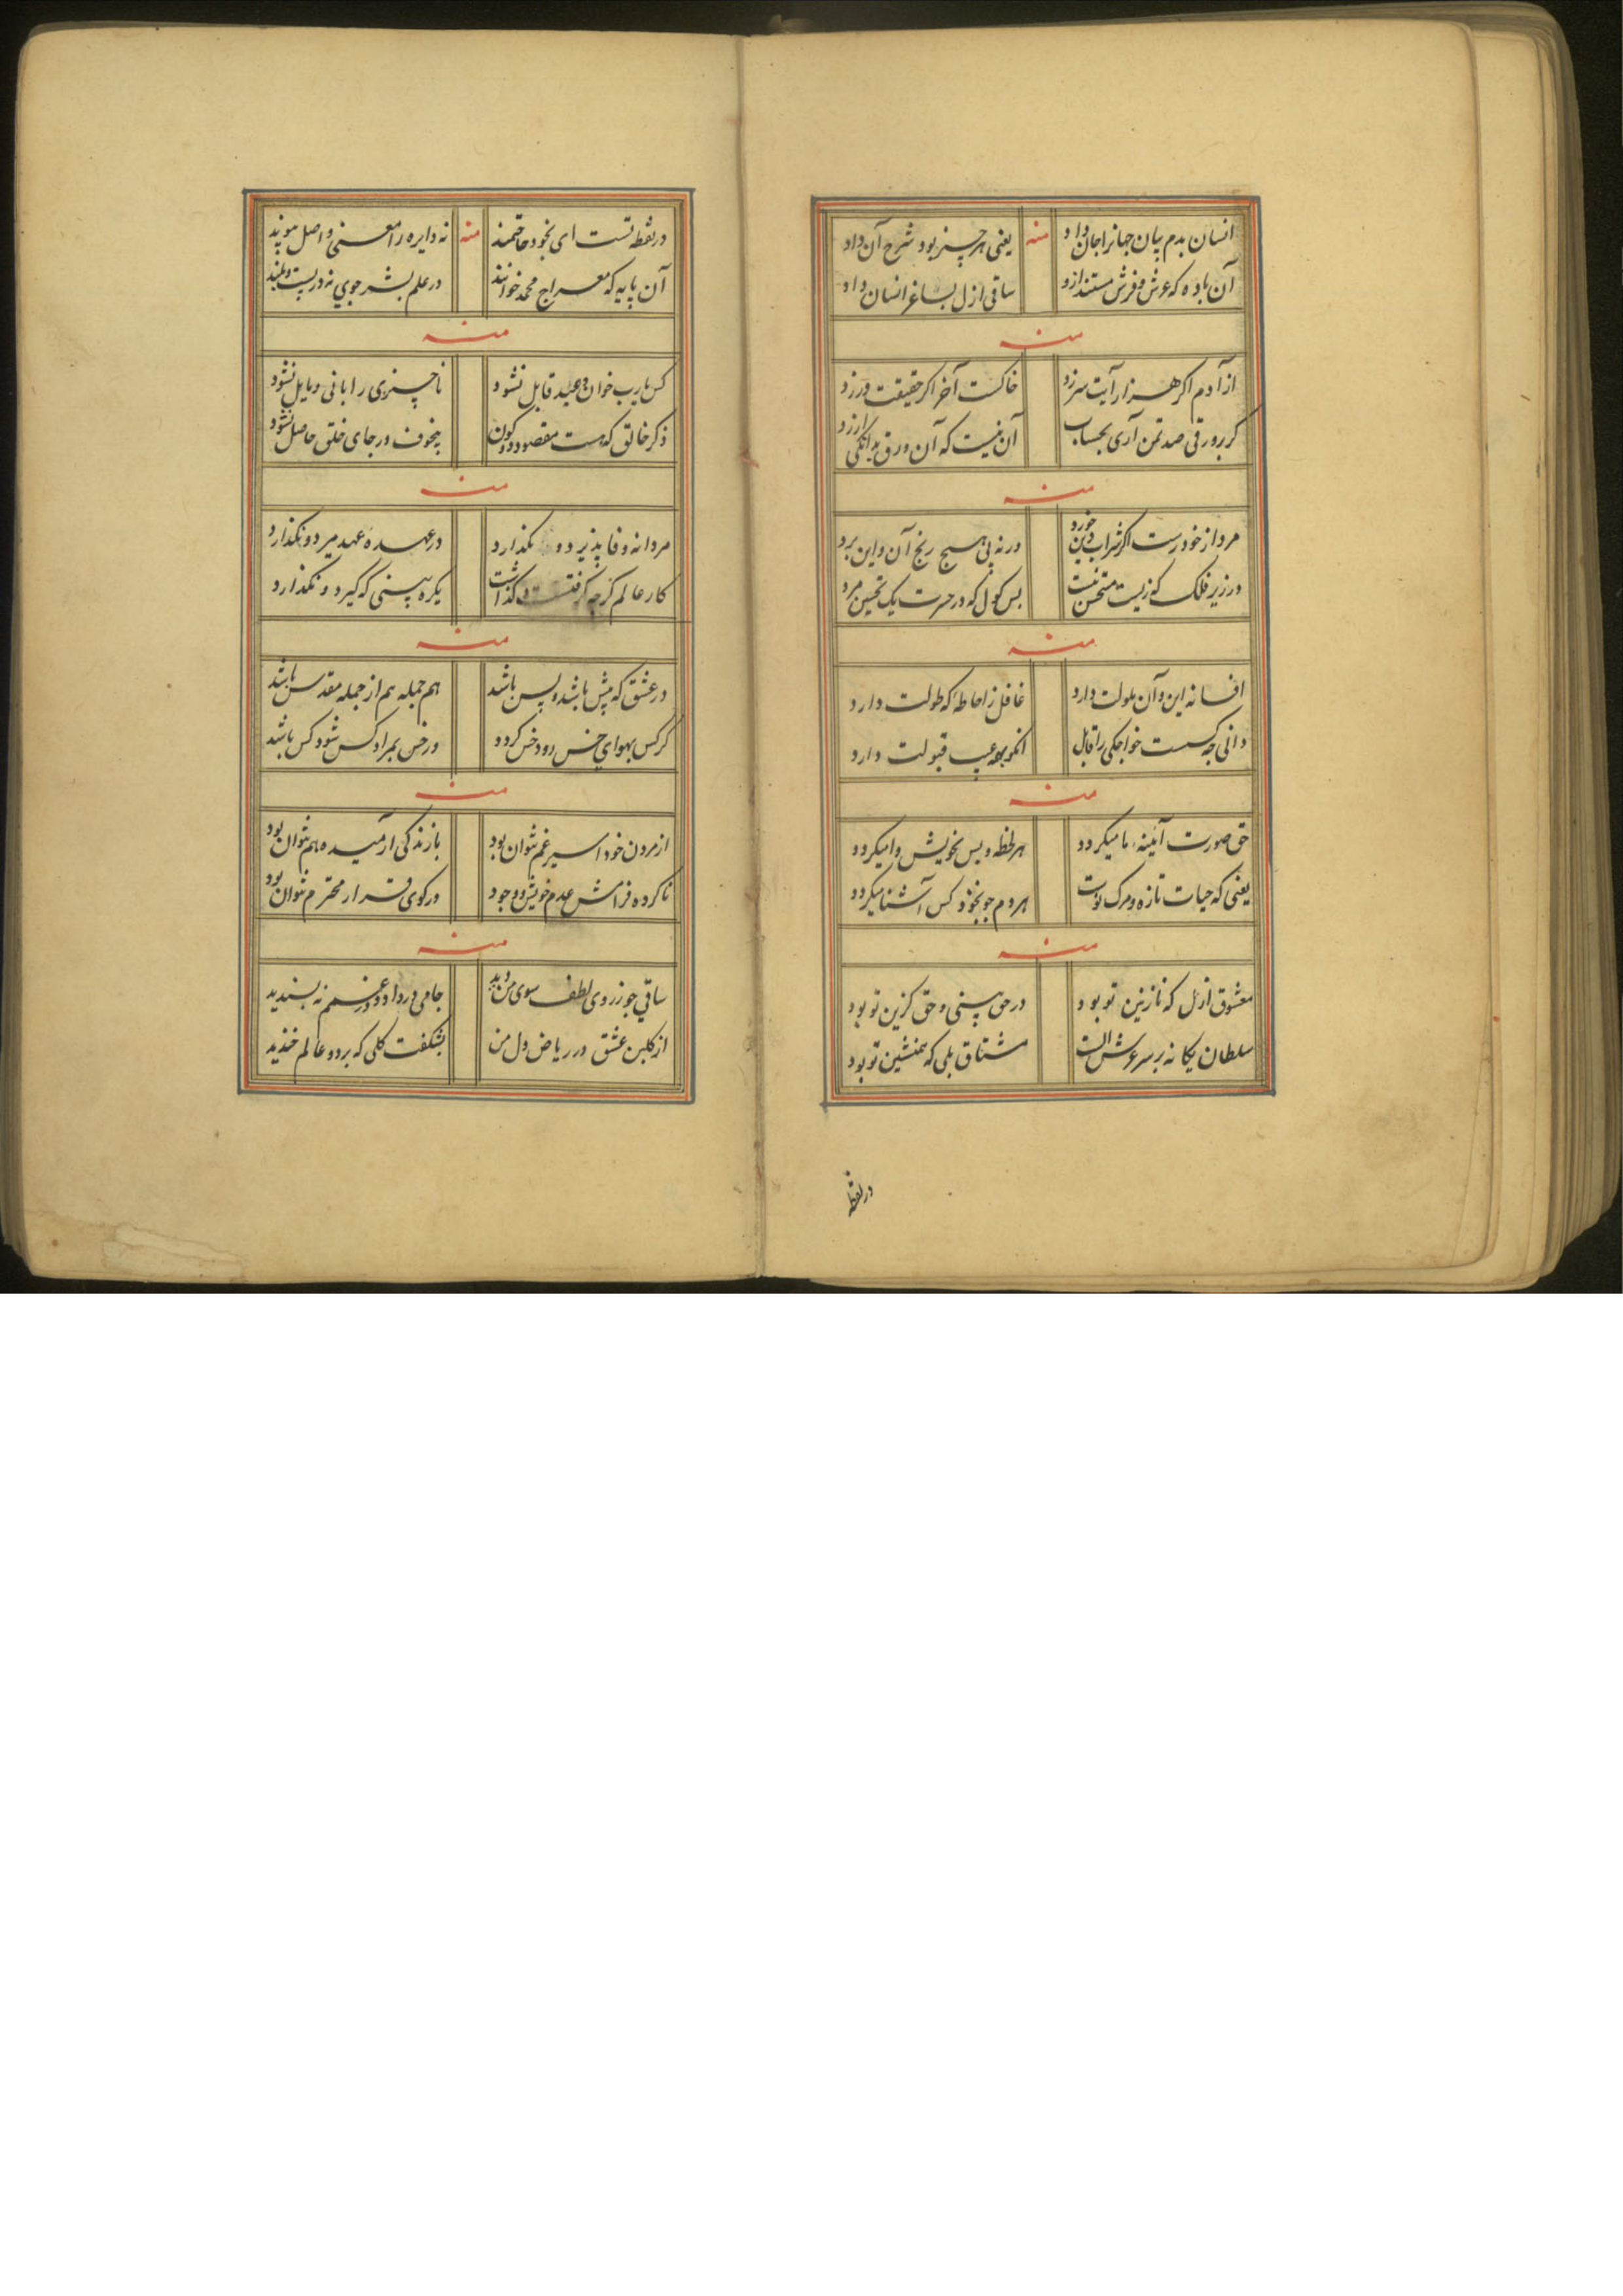 انسان بدم بیان جهانرا جان داد منه یعنی هر چیز بود شرح آن داد
آن باده که عرش و فرش مستند ازو ساقی ازل بساغر انسان داد
منه
از آدم اگر هزار آیت سرزد خاکست آخر اگر حقیقت ورزد
گر بر ورقی صد تمن آری بحساب آن نیست که آن ورق بدانکی ارزد
منه
مرد از خود رست اگر شراب دین خورد ورنه پی هیچ رنج آن و این برد
در زیر فلک که زیست مستحسن نیست بس کول که در حسرت یک تحسین مرد
منه
افسانه این و آن ملولت دارد غافل ز احاطه که طولت دارد
دانی چه کسست خواجگی را قابل انکو بهمه عیب قبولت دارد
منه
حق صورت آئینه ما میکردد هر لحظه و بس بخویش وا میکردد
یعنی که حیات تازه و مرک نوست هر دم چو بخود کس آشنا میکردد
منه
معشوق ازل که نازنین تو بود در حق بینی و حق گزین تو بود
سلطان یکانه بر سر عرش الست مشتاق بلی که همنشین تو بود
در نقطه
در نقطه تست ای بخود حاجتمند منه نه دایره را معنی و اصل و پیوند
آن پایه که معراج محمد خوانند در علم بشر جوی نه در پست و بلند
منه
کس یارب خوان وعید قابل نشود ناچیزی را بانی و مایل نشود
ذکر خالق که هست مقصود دو کون بیخوف و رجای خلق حاصل نشود
منه
مردانه وفا پذیرد و نکذارد در عهده عهد میرد و نکذارد
کار عالم گرچه گرفتست و گذاشت یکره بینی که گیرد و نکذارد
منه
در عشق که پیش باشد و پس باشد هم جمله هم از جمله مقدس باشد
گر کس بهوای خس رود خس کردد ور خس بمراد کس شود کس باشد
منه
از مردن خود اسیر غم نتوان بود با زندگی آرمیده هم نتوان بود
ناکرده فرامش عدم خویش و وجود در کوی قرار محترم نتوان بود
منه
ساقی چو ز روی لطف سوی من دید جامی در داد و در غمم نه پسندید
از کلبن عشق در ریاض دل من بشکفت کلی که بر دو عالم خندید